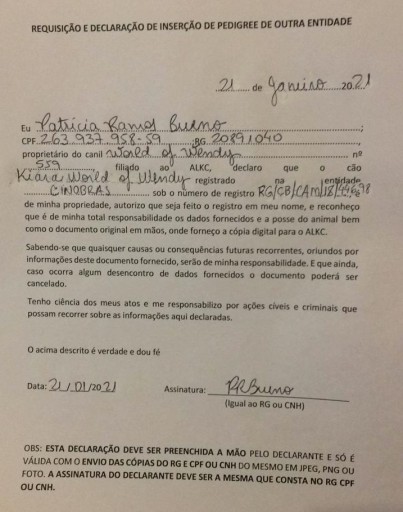 REQUISIÇÃO E DECLARAÇÃO DE INSERÇÃO DE PEDIGREE DE OUTRA ENTIDADE
21 de Janeiro 2021
Eu Patrícia Ramos Bueno ;
CPF 263.937.958-59 RG 20891040
proprietário do canil World of Wendy nº
559 filiado ao ALKC, declaro que o cão
Kiara World of Wendy registrado na entidade
CINOBRAS sob o número de registro
de minha propriedade, autorizo que seja feito o registro em meu nome, e reconheço
que é de minha total responsabilidade os dados fornecidos e a posse do animal bem
como o documento original em mãos, onde forneço a cópia digital para o ALKC.
Sabendo-se que quaisquer causas ou consequências futuras recorrentes, oriundos por
informações deste documento fornecido, serão de minha responsabilidade. E que ainda,
caso ocorra algum desencontro de dados fornecidos o documento poderá ser
cancelado.
Tenho ciência dos meus atos e me responsabilizo por ações cíveis e criminais que
possam recorrer sobre as informações aqui declaradas.
O acima descrito é verdade e dou fé
Data: 21/01/2021 Assinatura: PRBueno
(Igual ao RG ou CNH)
OBS: ESTA DECLARAÇÃO DEVE SER PREENCHIDA A MÃO PELO DECLARANTE E SÓ É
VÁLIDA COM O ENVIO DAS CÓPIAS DO RG E CPF OU CNH DO MESMO EM JPEG, PNG OU
FOTO. A ASSINATURA DO DECLARANTE DEVE SER A MESMA QUE CONSTA NO RG CPF
OU CNH.